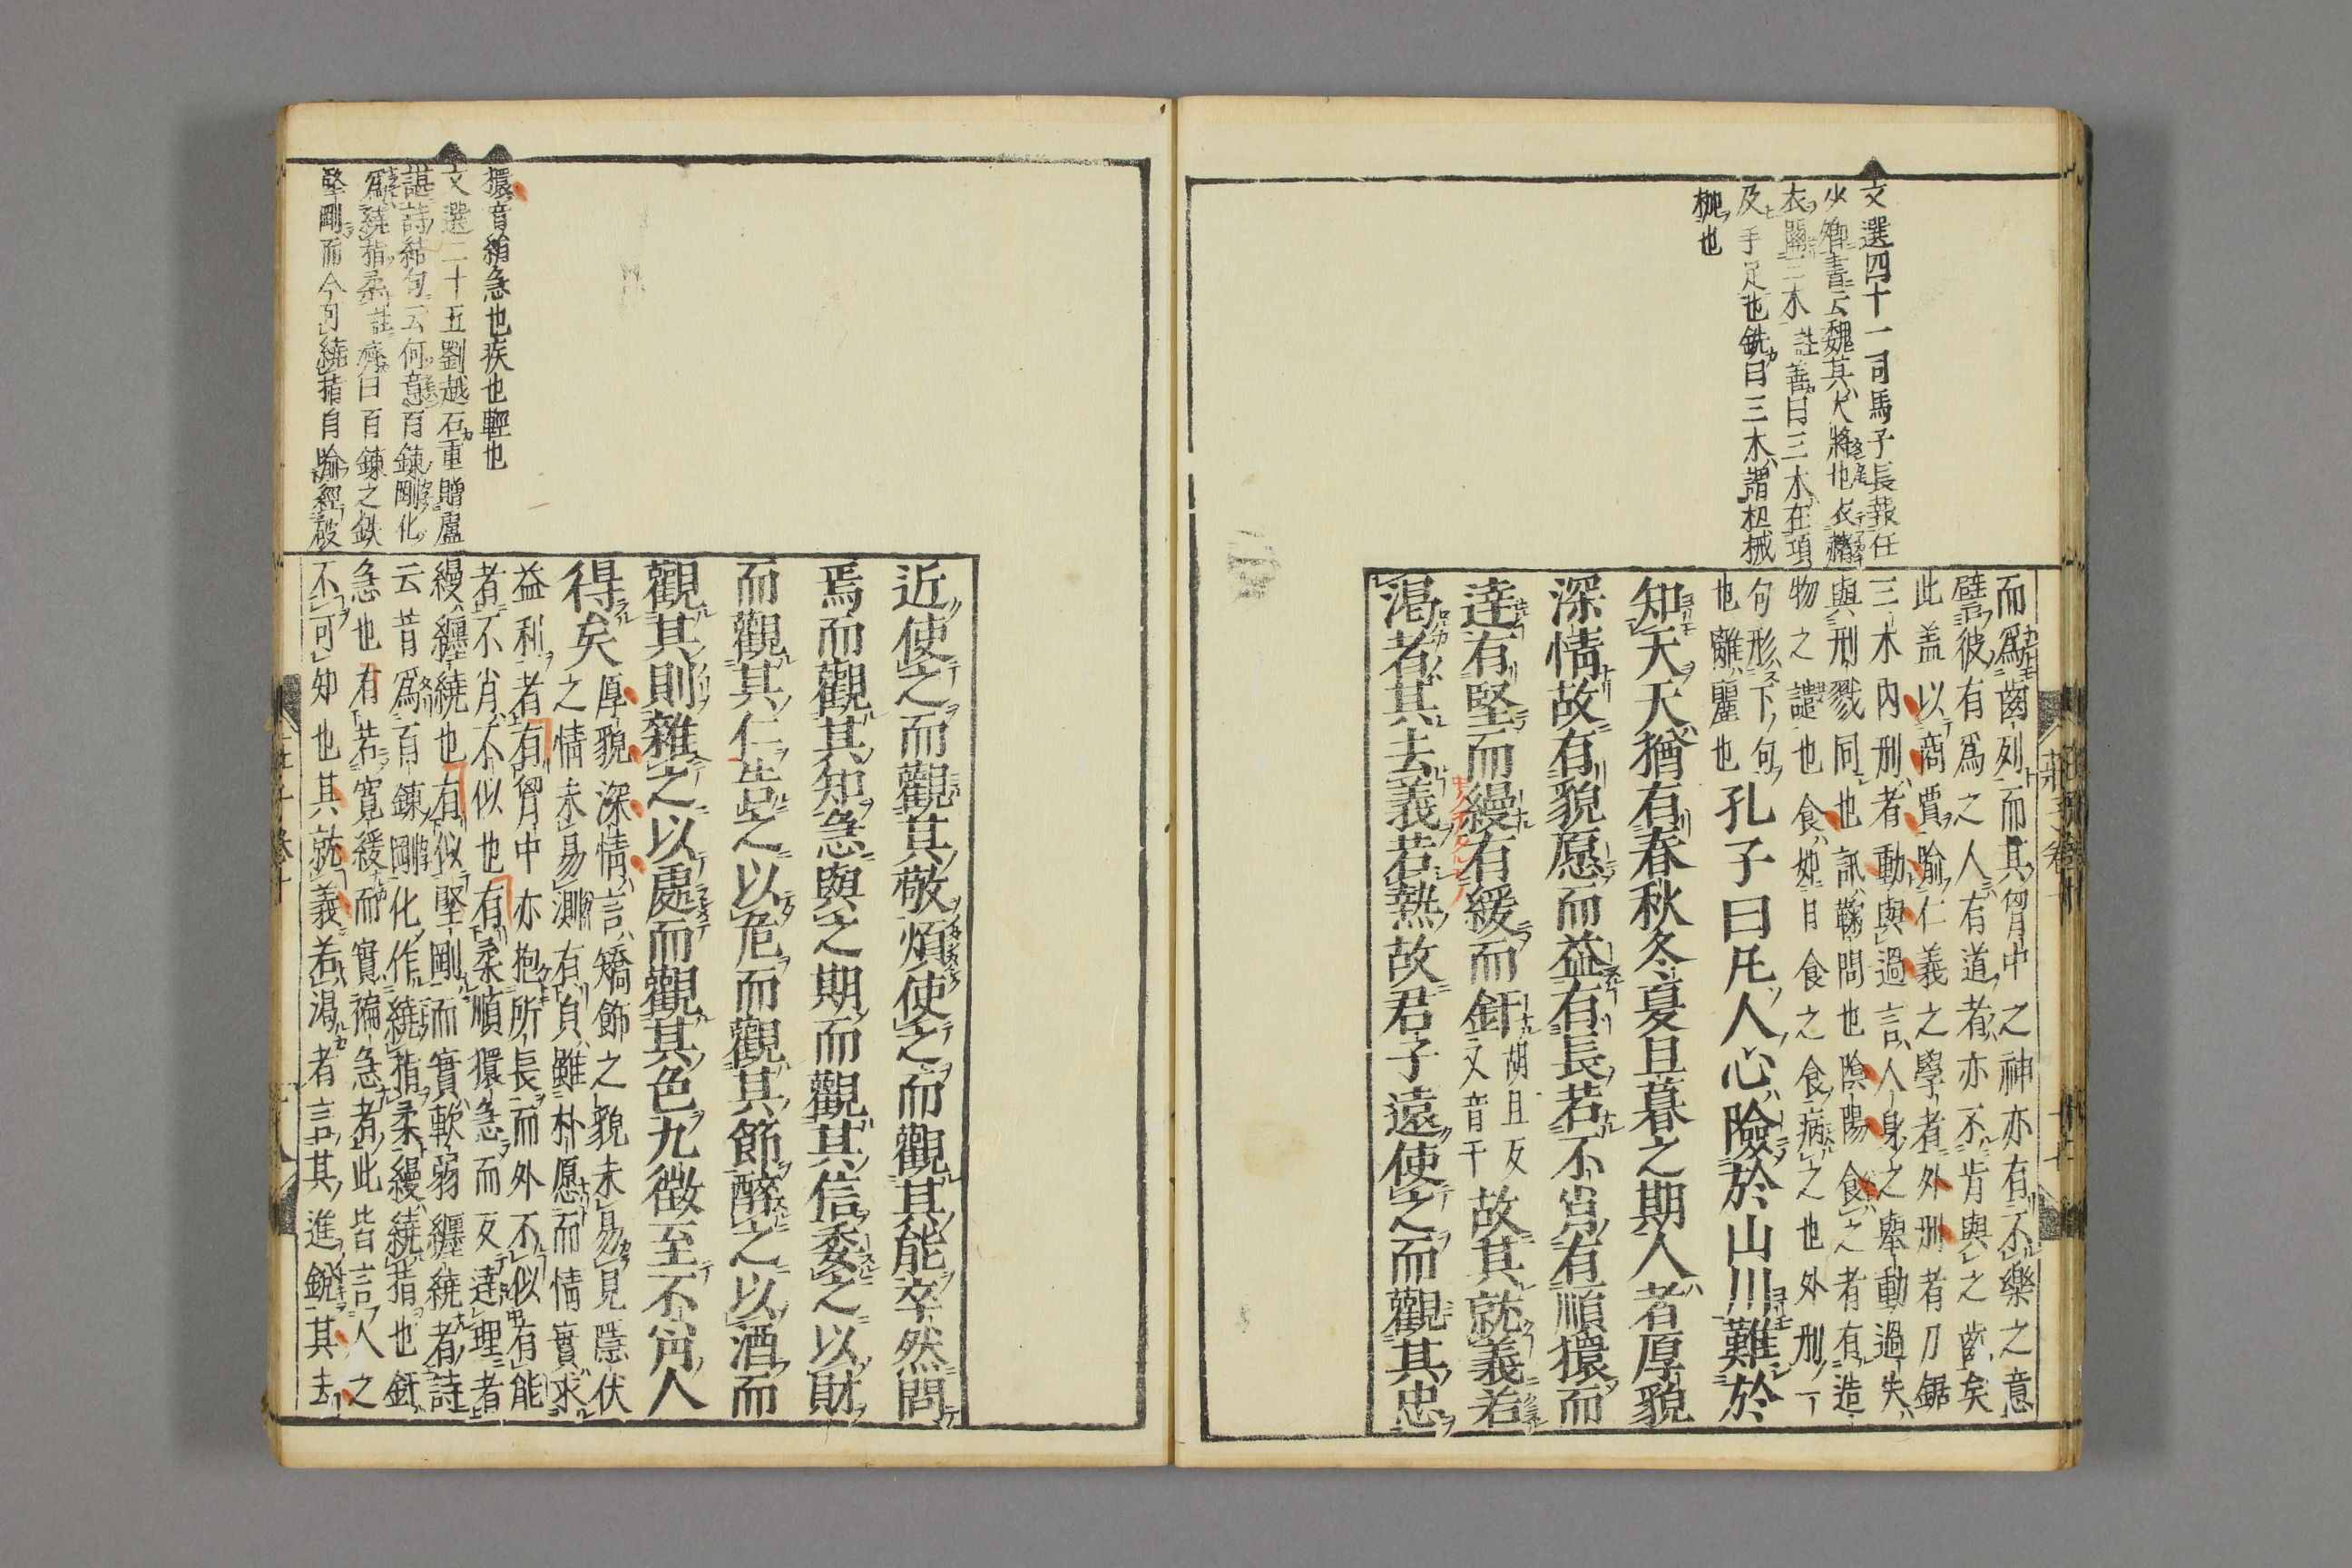 文選四十一司馬子長報任
少卿書云魏其大將也衣赭
衣關三木註善曰三木在項
及手足也銑曰三木謂杻械
枷也
而爲齒列而其胷中之神亦有不樂之意
譬彼有爲之人有道者亦不肯與之齒矣
此盖以商賈喻仁義之學者外刑者刀鋸
三木內刑者動與過言人身之舉動過失
與刑戮同也訊鞫問也陰陽食之者有造
物之譴也食如日食之食病之也外刑丅
句形下句
也離麗也孔子曰凡人心險於山川難於
知天天猶有春秋冬夏旦暮之期人者厚貌
深情故有貌愿而益有長若不肖有順獧而
達有堅而縵有緩而釬胡旦反又音干故其就義若
渴者其去義若熱故君子遠使之而觀其忠
莊子卷十
獧音絹急也疾也輕也
文選二十五劉越石重贈盧
諶詩結句云何意百鍊剛化
爲繞指柔註濟曰百鍊之鉄
堅剛而今可繞指自喻經破
近使之而觀其敬煩使之而觀其能卒然問
焉而觀其知急與之期而觀其信委之以財
而觀其仁告之以危而觀其節醉之以酒而
觀其則雜之以處而觀其色九徵至不肖人
得矣厚貌深情言矯飾之貌未易見隱伏
之情未易測有貟雖朴愿而情實求
益利者有胷中亦抱所長而外不似有能
者不肖不似也有柔順獧急而反達理者
縵纏繞也有似堅剛而實軟弱纏繞者詩
云昔爲百鍊剛化作繞指柔縵繞指也釬
急也有若寬緩而實褊急者此皆言人之
不可知也其就義若渴者言其進銳其去